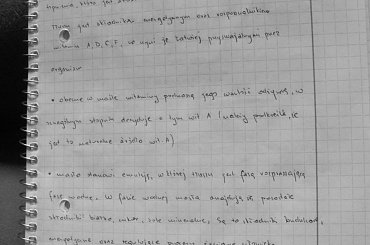 tłuszcz jest składnikiem energetycznym oraz rozpuszczalnikiem
witamin A, D, E, F, co czyni je łatwiej przyswajalnym przez
organizm
• obecne w maśle witaminy podnoszą jego wartość odżywczą, w
szczególnym stopniu decyduje o tym wit A (należy podkreślić, że
jest to naturalne źródło wit. A)
• masło stanowi emulsję, w której tłuszcz jest fazą rozpraszającą
fazę wodną, w fazie wodnej masła znajdują się pozostałe
składniki białko, cukier, sole mineralne, są to składniki budulcowe,
energetyczne oraz regulujące